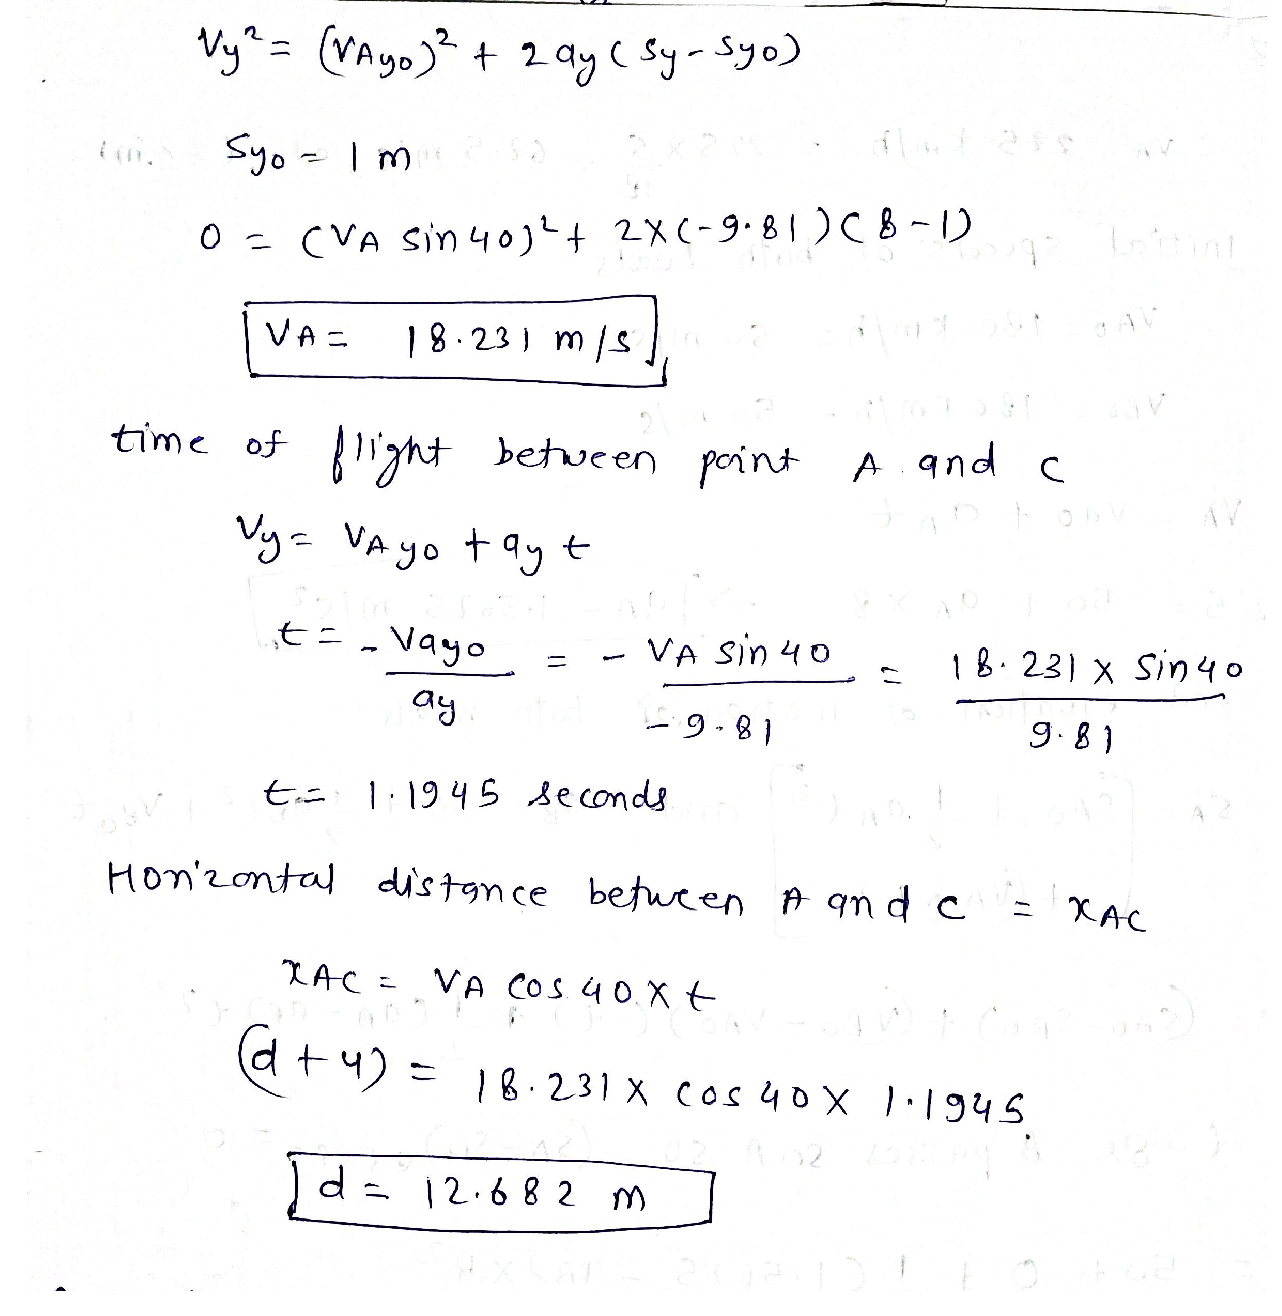 Vy² = (VAyo)² + 2ay(Sy - Syo)
Syo = 1 m
0 = (VA sin 40)² + 2×(-9.81)(8-1)
VA = 18.231 m/s
time of flight between point A and C
Vy = VAyo + ay t
t = -Vayo/ay = -VA sin 40/-9.81 = 18.231 × sin 40/9.81
t = 1.1945 seconds
Horizontal distance between A and C = xAC
xAC = VA cos 40 × t
(d + 4) = 18.231 × cos 40 × 1.1945
d = 12.682 m